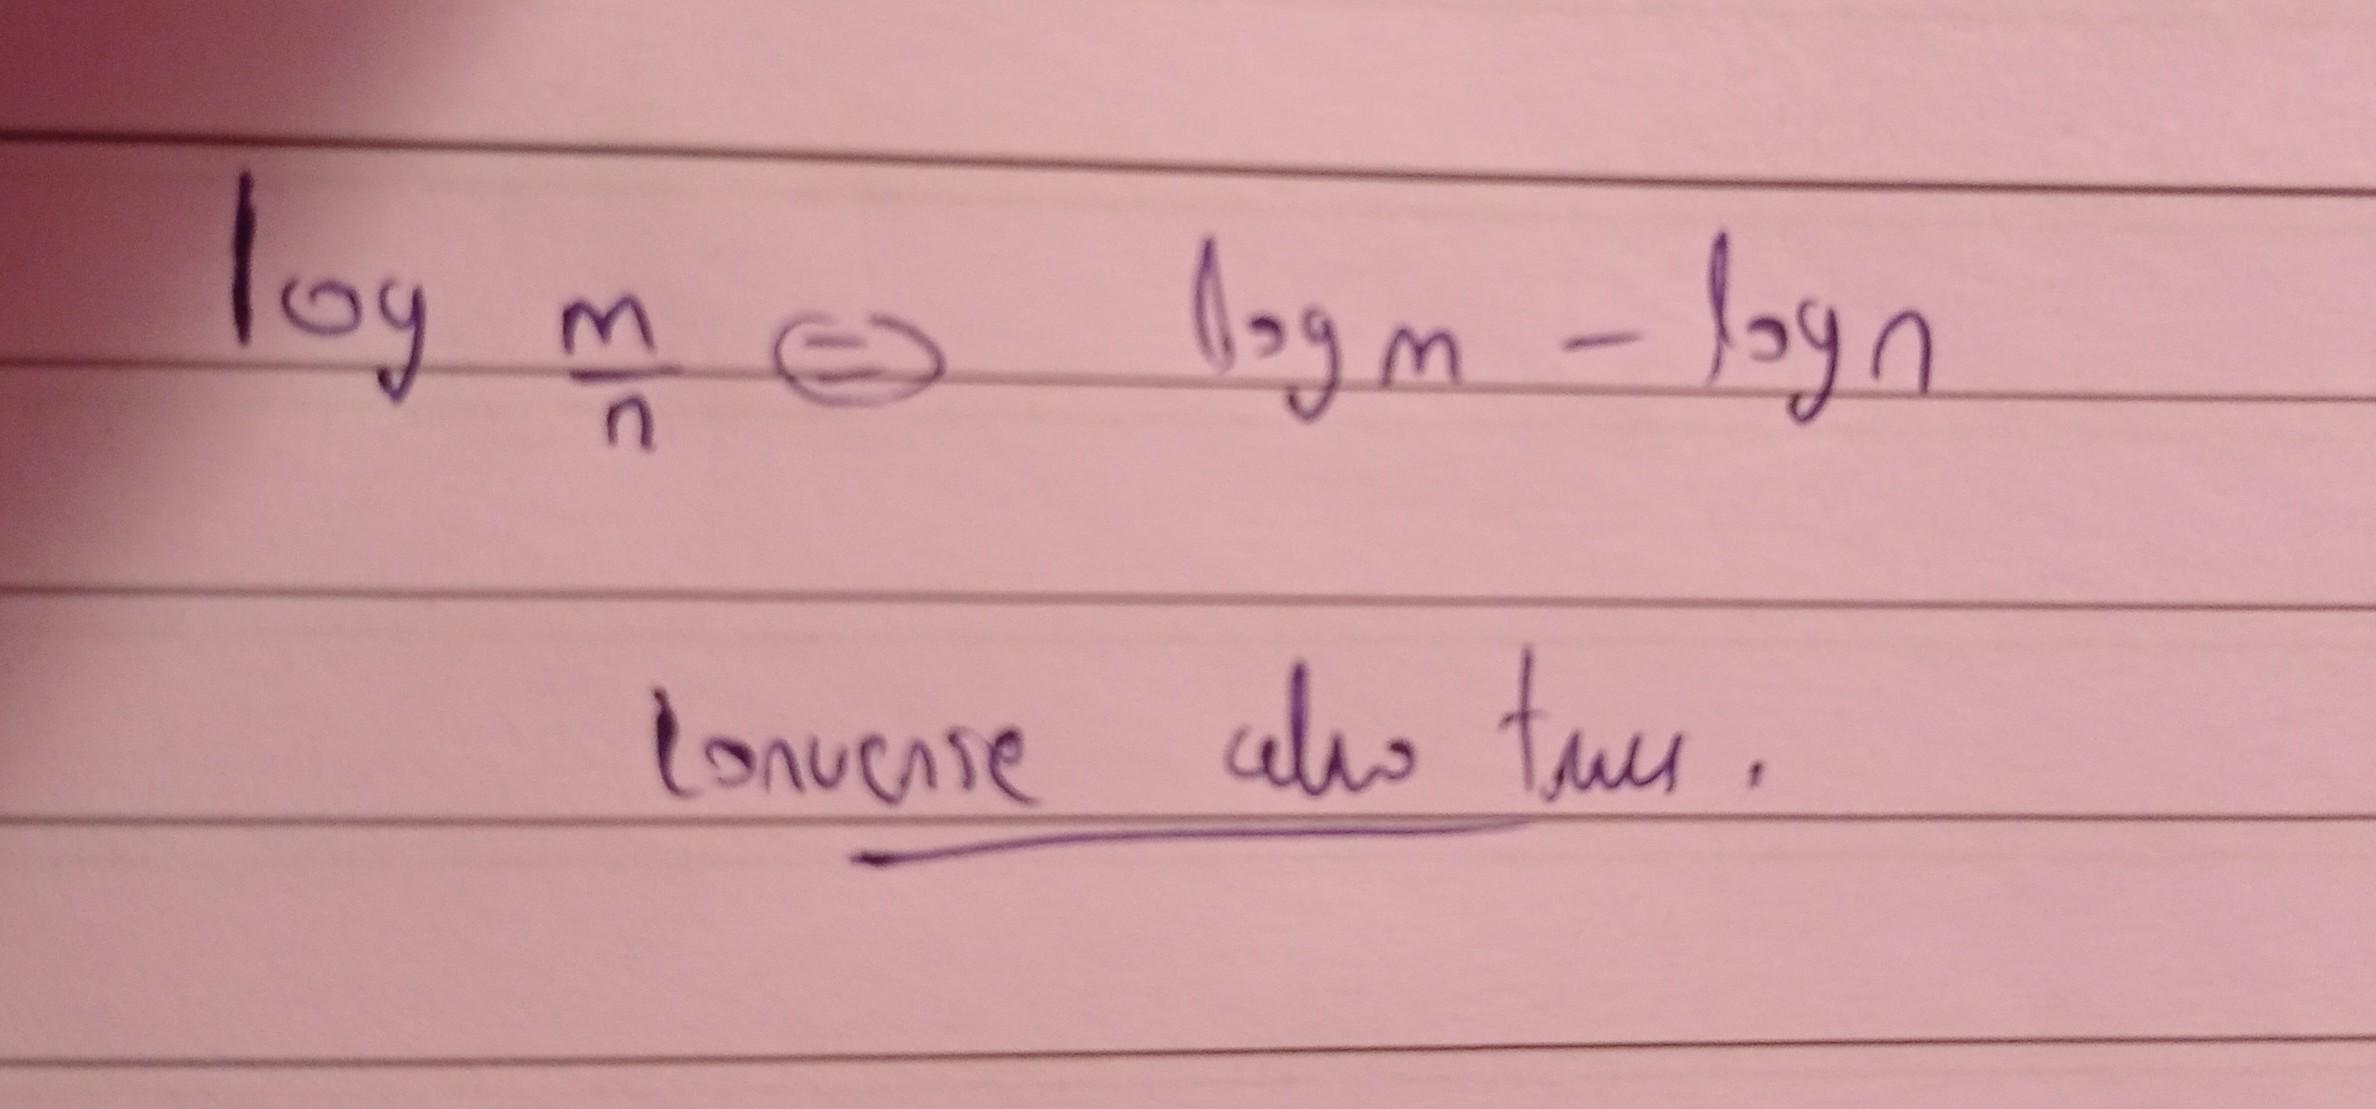 log m/n ⇔ log m - log n
Converse also true.